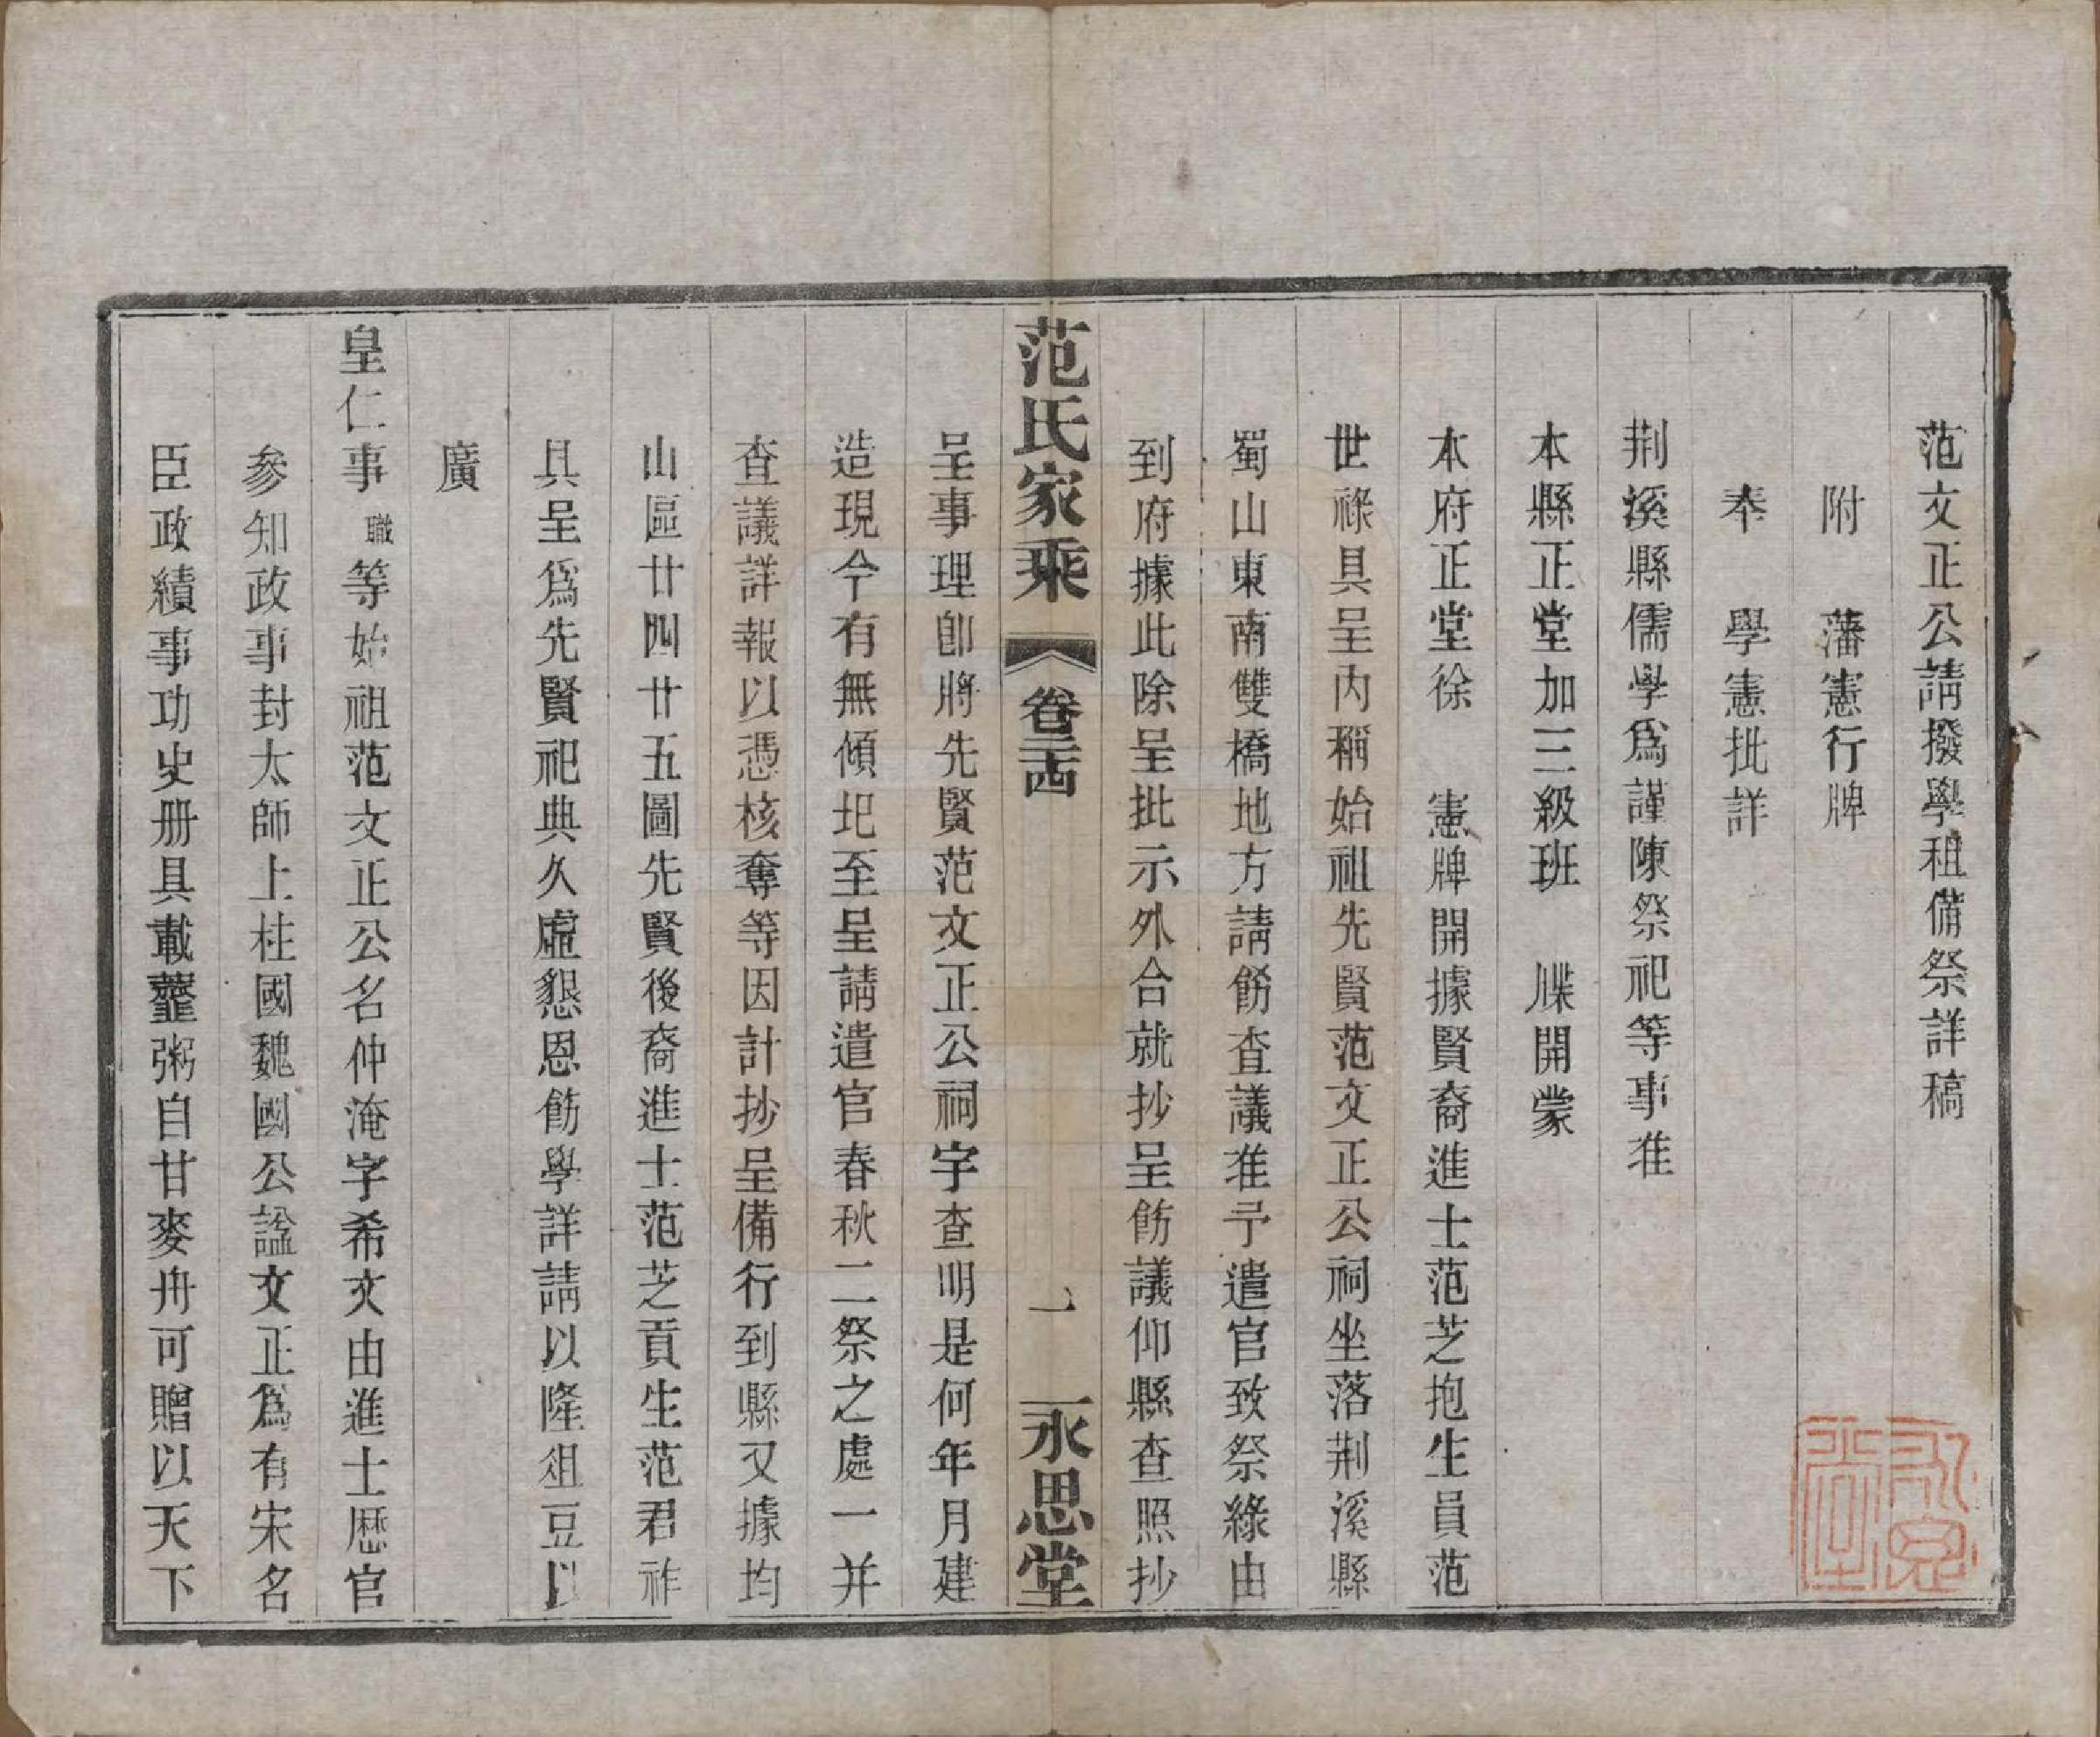 范文正公請撥學租備祭詳稿
附　藩憲行牌
奉　學憲批詳
荆溪縣儒學爲謹陳祭祀等事准
本縣正堂加三級班　牒開蒙
本府正堂徐　憲牌開據賢裔進士范芝抱生員范
世祿具呈内稱始祖先賢范文正公祠坐落荆溪縣
蜀山東南雙橋地方請飭查議准予遣官致祭緣由
到府據此除呈批示外合就抄呈飭議仰縣查照抄
范氏家乘　卷二十四　一　永思堂
呈事理卽將先賢范文正公祠宇查明是何年月建
造現今有無傾圯至呈請遣官春秋二祭之處一并
查議詳報以憑核奪等因計抄呈備行到縣又據均
山區廿四廿五圖先賢後裔進士范芝貢生范君祚
具呈爲先賢祀典久虛懇恩飭學詳請以隆俎豆以
廣
皇仁事職等始祖范文正公名仲淹字希文由進士歴官
參知政事封太師上柱國魏國公諡文正爲有宋名
臣政績事功史册具載虀粥自甘麥舟可贈以天下
永思堂